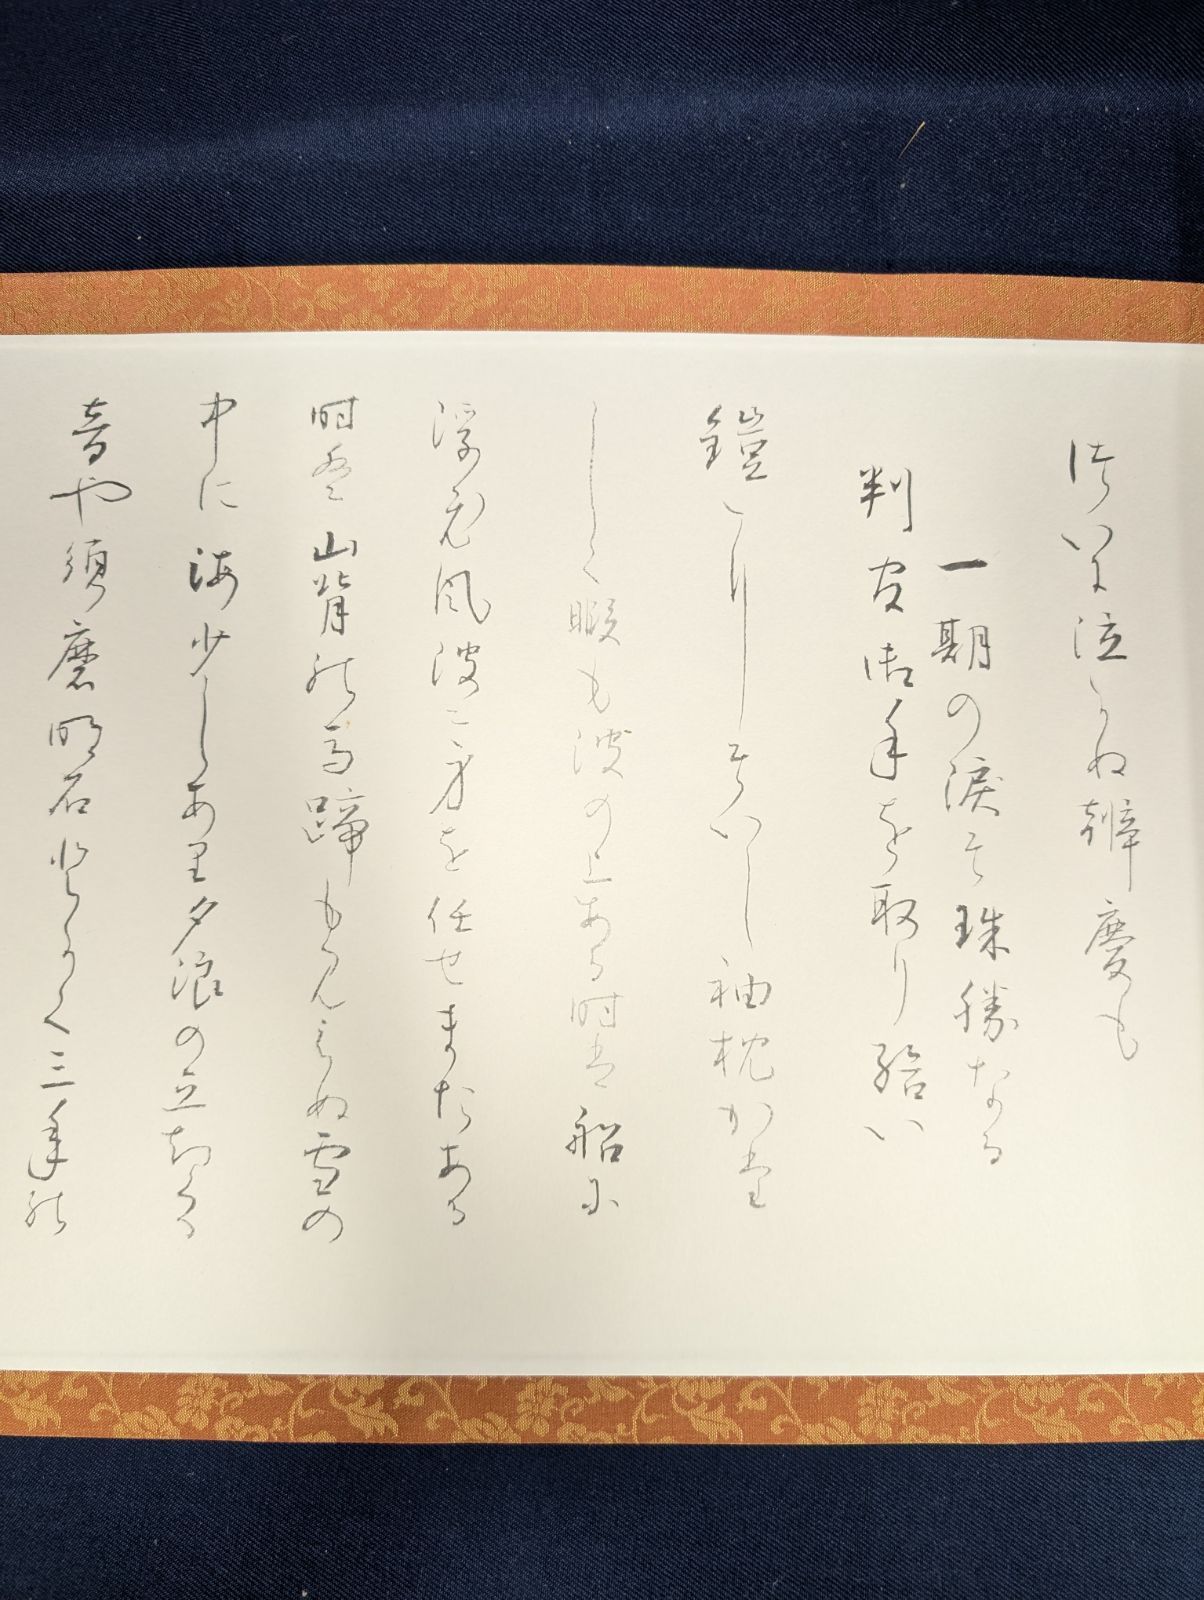 ついに泣かぬ辨慶も
一期の涙そ珠勝なる
判官御手を取り給い
鎧にそいし袖枕かた
しく暇も波の上ある時は船に
浮ひ風波に身を任せまたある
時は山背の馬蹄も見えぬ雪の
中に海少しあり夕浪の立ちくる
音や須磨明石とかく三年の